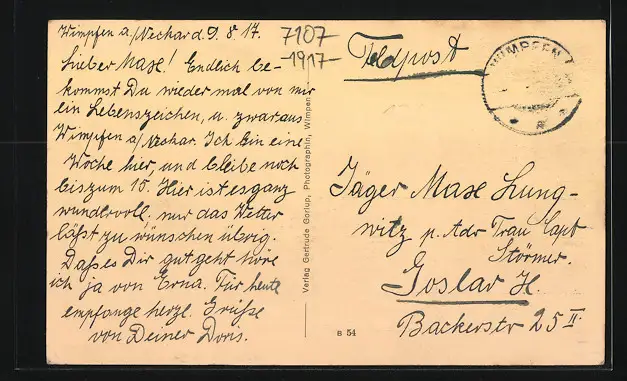 Wimpfen a/Neckar d. 9. 8. 17.
Lieber Max! Endlich be-
kommst Du wieder mal von mir
ein Lebenszeichen, u. zwar aus
Wimpfen a/Neckar. Ich bin eine
Woche hier, und bleibe noch
bis zum 10. Hier ist es ganz
wundervoll, nur das Wetter
läßt zu wünschen übrig.
Daß es Dir gut geht höre
ich ja von Erna. Für heute
empfange herzl. Grüße
von Deiner Doris.
7107
-1917-
Verlag Gertrude Gorlup, Photographin, Wimpfen
B 54
Feldpost
WIMPFEN
Jäger Max Lung-
witz p. Adr Frau Capt
Störmer.
Goslar H.
Backerstr 25 II